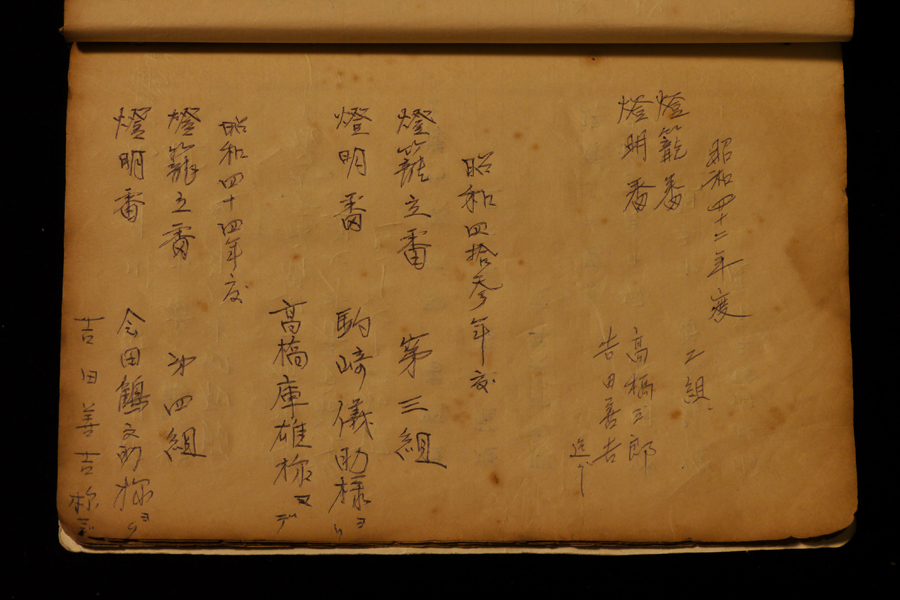 昭和四十二年度
燈籠番 2組
燈明番 高橋三郎
吉田善吉
迄
昭和四拾参年度
燈籠立番 第三組
燈明番 駒崎儀助様ヨリ
高橋庫雄様マデ
昭和四十四年度
燈籠立番 第四組
燈明番 会田鶴之助様ヨリ
吉田善吉様迄